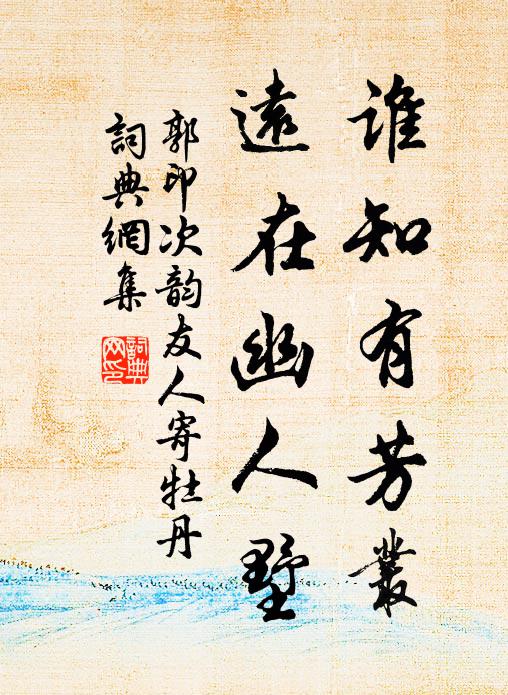 誰知有芳叢
遠在幽人墅
郭印次韵友人寄牡丹
詞典網集
詞典网印